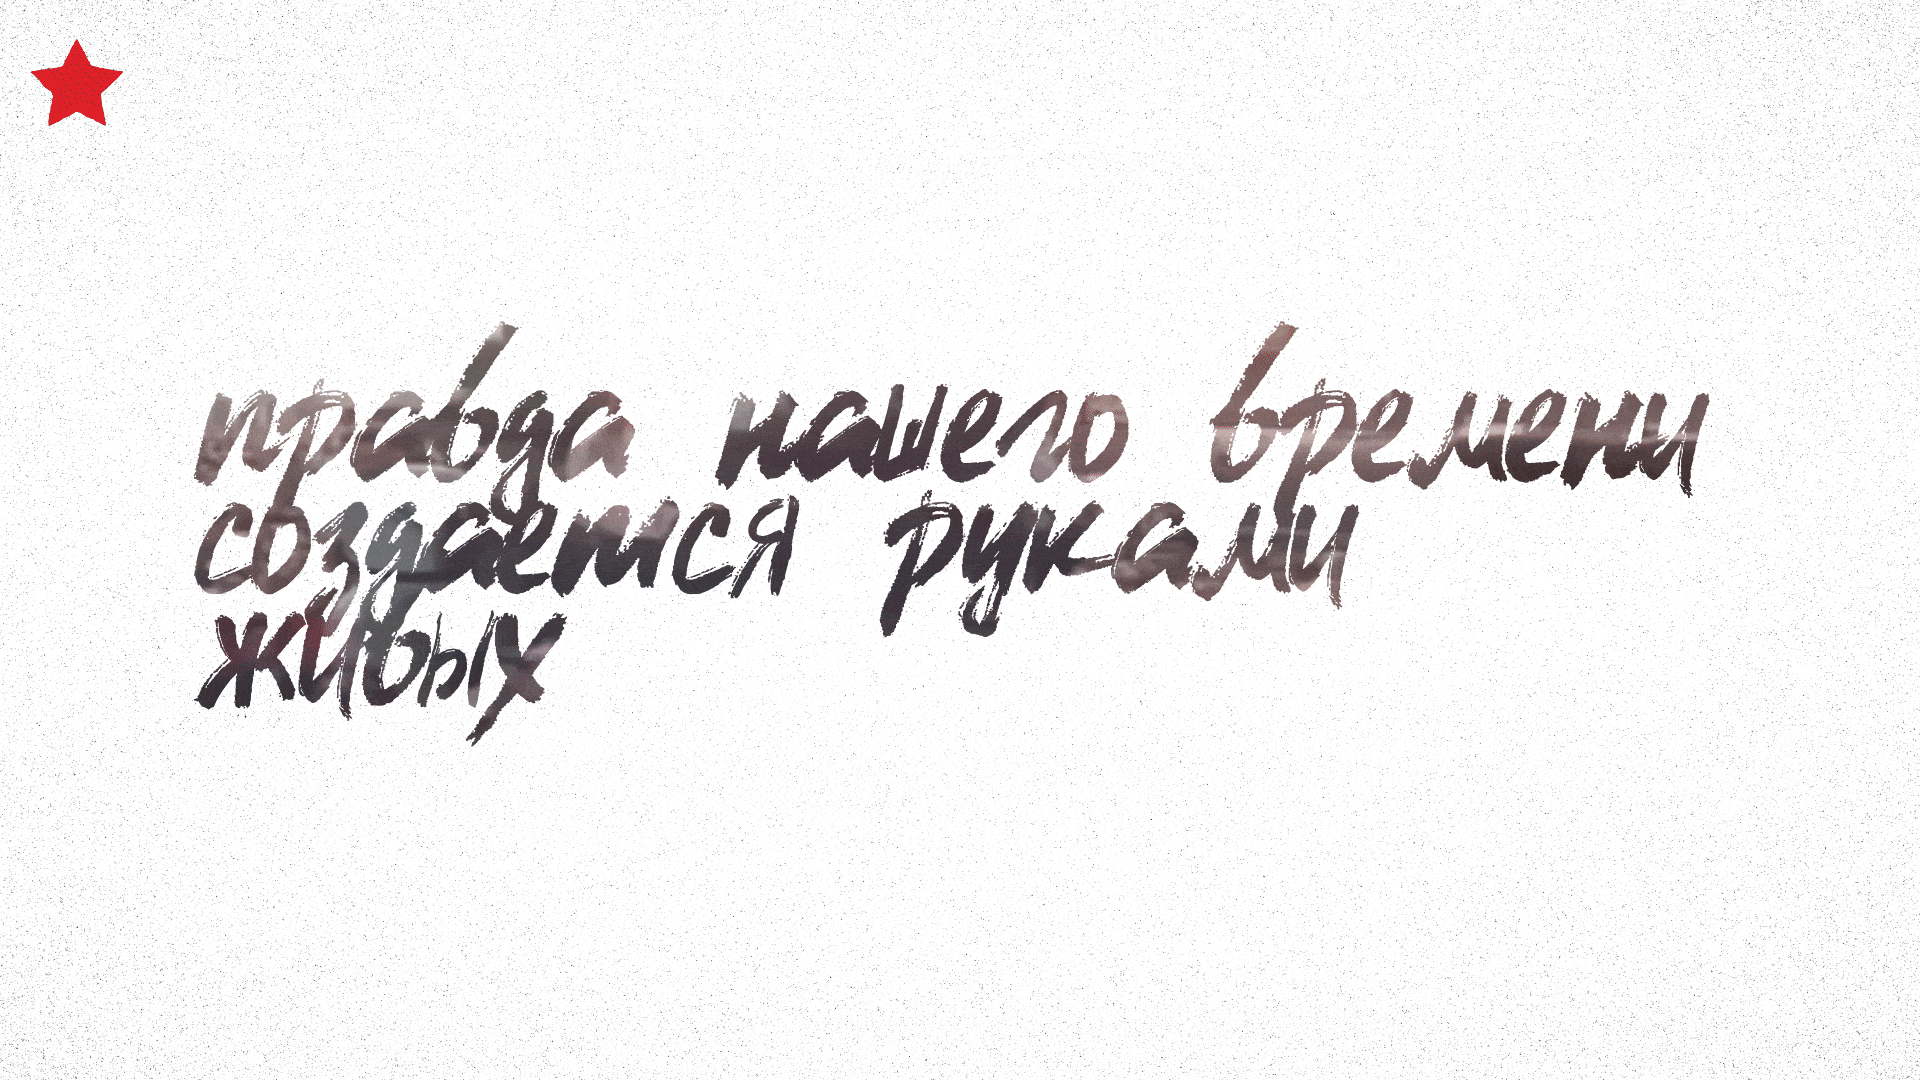 правда нашего времени
создается руками
живых